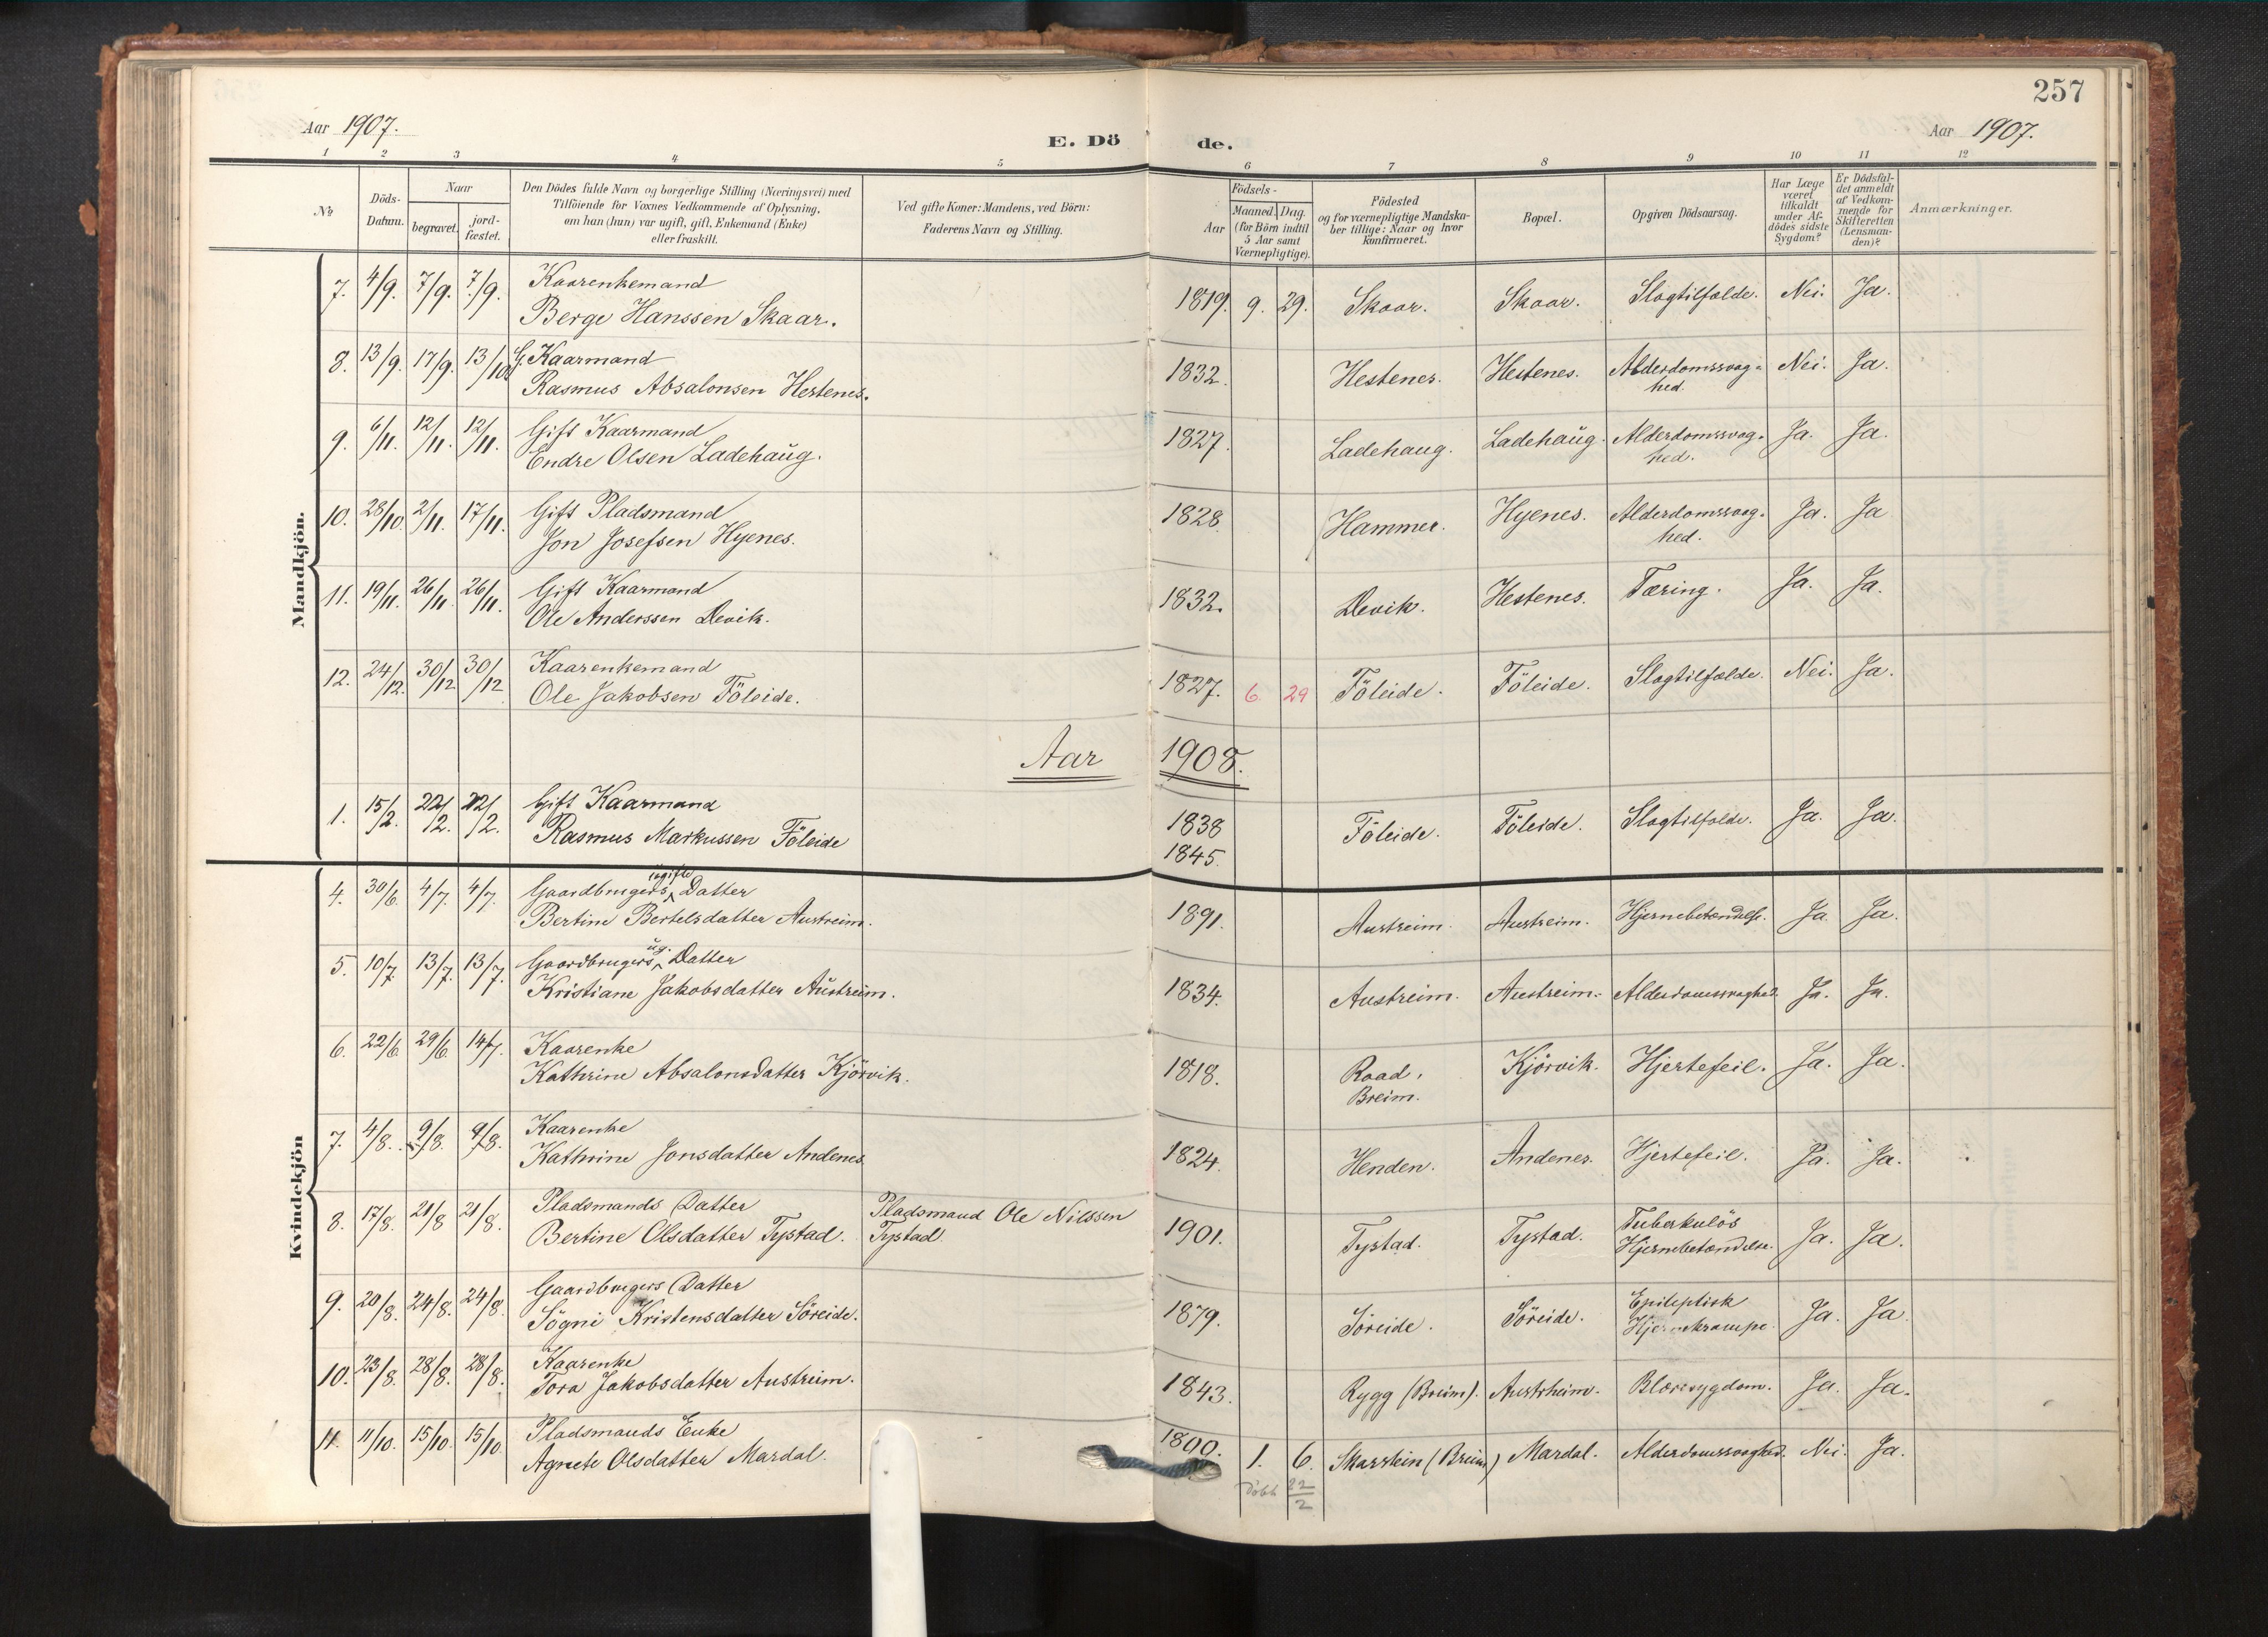 257
Aar 1907.
E. Dö de.
Aar 1907.
1 2 3 4 5 6 7 8 9 10 11 12
№
Döds-
Datum.
Naar
begravet.
jord-
fæstet.
Den Dödes fulde Navn og borgerlige Stilling (Næringsvei) med
Tilföiende for Voxnes Vedkommende af Oplysning,
om han (hun) var ugift, gift, Enkemand (Enke)
eller fraskilt.
Ved gifte Koner: Mandens, ved Börn:
Faderens Navn og Stilling.
Födsels-
Aar
Maaned. Dag.
(for Börn indtil
5 Aar samt
Værnepligtige).
Födested
og for værnepligtige Mandska-
ber tillige: Naar og hvor
konfirmeret.
Bopæl.
Opgiven Dödsaarsag.
Har Læge
været
tilkaldt
under Af-
dödes sidste
Sygdom?
Er Dödsfal-
det anmeldt
af Vedkom-
mende for
Skifteretten
(Lensman-
den)?
Anmærkninger.
Mandkjön.
7. 4/9. 7/9. 7/9. Kaarenkemand
Berge Hanssen Skaar. 1819. 9. 29. Skaar. Skaar. Slagtilfælde. Nei. Ja.
8. 13/9. 17/9. 13/10 G. Kaarmand
Rasmus Absalonsen Hestenes. 1832. Hestenes. Hestenes. Alderdomssvag-
hed. Nei. Ja.
9. 6/11. 12/11. 12/11. Gift Kaarmand
Endre Olsen Ladehaug. 1827. Ladehaug. Ladehaug. Alderdomssvag-
hed. Ja. Ja.
10. 28/10. 2/11. 17/11. Gift Pladsmand
Jon Josefsen Hyenes. 1828. Hammer. Hyenes. Alderdomssvag-
hed. Ja. Ja
11. 19/11. 26/11. 26/11. Gift Kaarmand
Ole Anderssen Devik. 1832. Devik. Hestenes. Tæring. Ja. Ja.
12. 24/12. 30/12 30/12 Kaarenkemand
Ole Jakobsen Föleide. 1827. 6 29 Föleide. Föleide. Slagtilfælde. Nei. Ja.
Aar 1908.
1. 15/2. 22/2. 22/2. Gift Kaarmand
Rasmus Markussen Föleide 1838 Föleide. Föleide. Slagtilfælde. Ja. Ja.
1845.
Kvindekjön
4. 30/6. 4/7. 4/7. Gaardbrugers ugifte Datter
Bertine Bertelsdatter Austreim. 1891. Austreim. Austreim. Hjernebetændelse. Ja. Ja.
5. 10/7. 13/7. 13/7. Gaardbrugers ug. Datter
Kristiane Jakobsdatter Austreim. 1834. Austreim. Austreim. Alderdomssvaghed. Ja. Ja.
6. 22/6. 29/6. 14/7. Kaarenke
Kathrine Absalonsdatter Kjörvik. 1818. Raad,
Breim. Kjörvik. Hjertefeil. Ja. Ja.
7. 4/8. 9/8. 9/8. Kaarenke
Kathrine Jonsdatter Andenes. 1824. Henden. Andenes. Hjertefeil. Ja. Ja.
8. 17/8. 21/8 21/8. Pladsmands Datter Pladsmand Ole Nilssen
Bertine Olsdatter Tystad. Tystad. 1901. Tystad. Tystad. Tuberkulös
Hjernebetændelse. Ja. Ja.
9. 20/8. 24/8. 24/8. Gaardbrugers Datter
Sögni Kristensdatter Söreide. 1879. Söreide. Söreide. Epileptisk
Hjernekrampe. Ja. Ja
10. 23/8. 28/8. 28/8. Kaarenke
Tora Jakobsdatter Austreim. 1843. Rygg (Breim). Austrheim. Blæresygdom. Ja. Ja.
11. 11/10. 15/10. 15/10. Pladsmands Enke
Agnete Olsdatter Mardal. 1800. 1. 6. Skarstein (Breim) Mardal. Alderdomssvaghed. Nei. Ja.
döbt 22/2